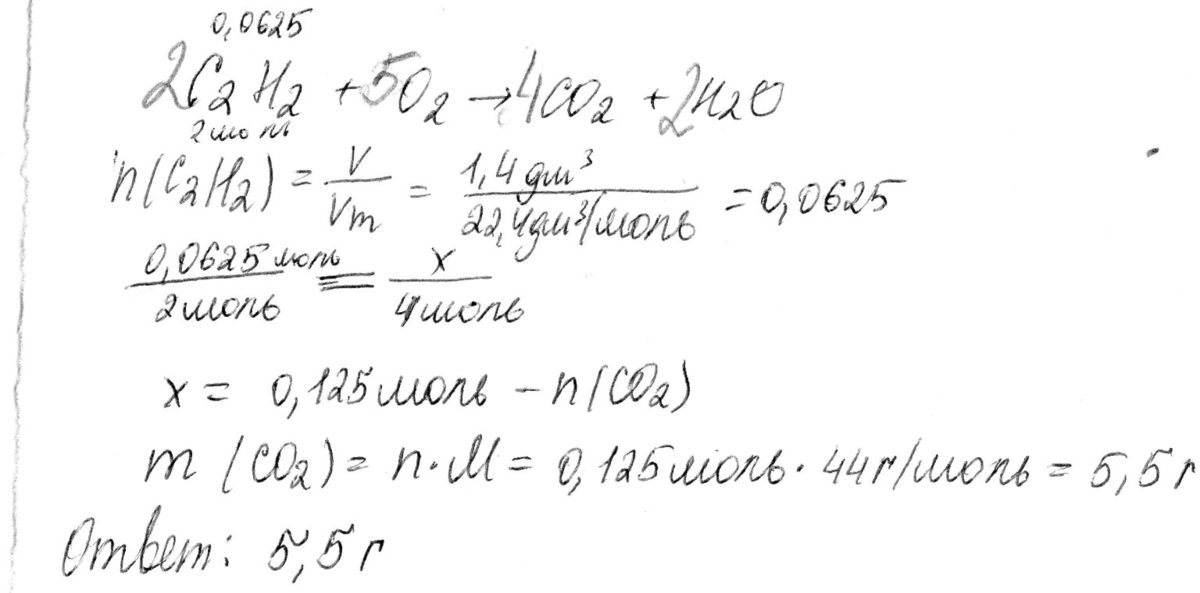 0,0625
2C₂H₂ + 5O₂ → 4CO₂ + 2H₂O
2моль
n(C₂H₂) = V/Vm = 1,4 дм³/22,4 дм³/моль = 0,0625
0,0625 моль/2 моль = x/4 моль
x = 0,125 моль – n(CO₂)
m (CO₂) = n·M = 0,125 моль · 44 г/моль = 5,5 г
Ответ: 5,5 г